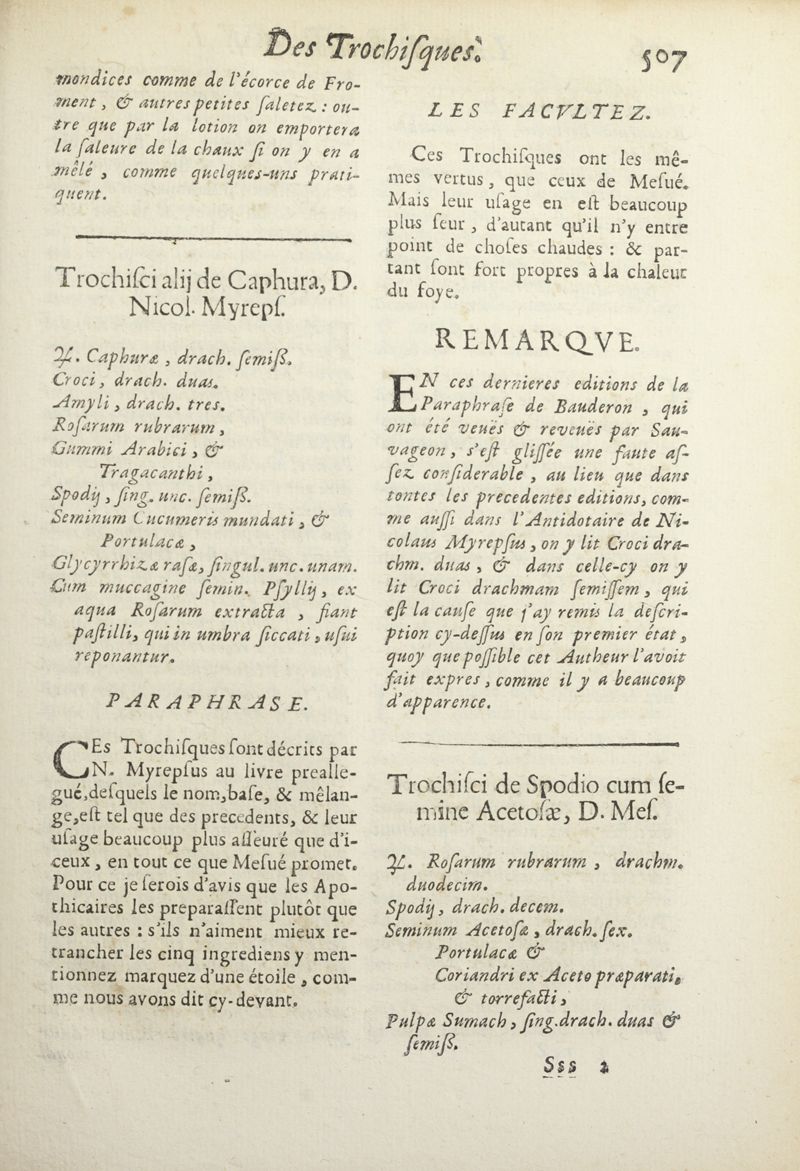 Des Trochiſques.
507
mondices comme de l'écorce de Fro-
ment, & autres petites ſaletez : ou-
tre que par la lotion on emportera
la ſaleure de la chaux ſi on y en a
mêlé, comme quelques-uns prati-
quent.
Trochiſci alij de Caphura, D.
Nicol. Myrepſ.
℞. Caphuræ, drach. ſemiß.
Croci, drach. duas.
Amyli, drach. tres.
Roſarum rubrarum,
Gummi Arabici, &
Tragacanthi,
Spodij, ſing. unc. ſemiß.
Seminum Cucumeris mundati, &
Portulacæ,
Glycyrrhizæ raſæ, ſingul. unc. unam.
Cum muccagine ſemin. Pſyllij, ex
aqua Roſarum extracta, fiant
paſtilli, qui in umbra ſiccati, uſui
reponantur.
PARAPHRASE.
CEs Trochiſques ſont décrits par
N. Myrepſus au livre prealle-
gué, deſquels le nom, baſe, & mêlan-
ge, eſt tel que des precedents, & leur
uſage beaucoup plus aſſeuré que d'i-
ceux, en tout ce que Meſué promet.
Pour ce je ſerois d'avis que les Apo-
thicaires les preparaſſent plutôt que
les autres : s'ils n'aiment mieux re-
trancher les cinq ingrediens y men-
tionnez marquez d'une étoile, com-
me nous avons dit cy-devant.
LES FACVLTEZ.
Ces Trochiſques ont les mê-
mes vertus, que ceux de Meſué.
Mais leur uſage en eſt beaucoup
plus ſeur, d'autant qu'il n'y entre
point de choſes chaudes : & par-
tant ſont fort propres à la chaleur
du foye.
REMARQVE.
EN ces dernieres editions de la
Paraphraſe de Bauderon, qui
ont été veuës & reveuës par Sau-
vageon, s'eſt gliſſée une faute aſ-
ſez conſiderable, au lieu que dans
toutes les precedentes editions, com-
me auſſi dans l'Antidotaire de Ni-
colaus Myrepſus, on y lit Croci dra-
chm. duas, & dans celle-cy on y
lit Croci drachmam ſemiſſem, qui
eſt la cauſe que j'ay remis la deſcri-
ption cy-deſſus en ſon premier état,
quoy que poſſible cet Autheur l'avoit
fait expres, comme il y a beaucoup
d'apparence.
Trochiſci de Spodio cum ſe-
mine Acetoſæ, D. Meſ.
℞. Roſarum rubrarum, drachm.
duodecim.
Spodij, drach. decem.
Seminum Acetoſæ, drach. ſex.
Portulacæ &
Coriandri ex Aceto præparati,
& torrefacti,
Pulpæ Sumach, ſing. drach. duas &
ſemiß.
Sss 2